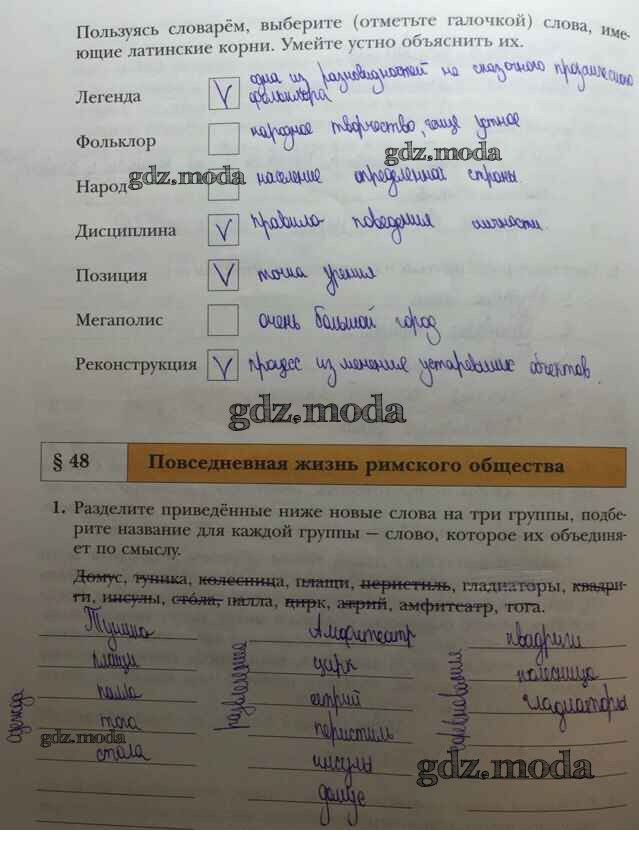 Пользуясь словарём, выберите (отметьте галочкой) слова, име-
ющие латинские корни. Умейте устно объяснить их.
Легенда V одна из разновидностей не сказочного прозаического
фольклора
Фольклор народное творчество, чаще устное
gdz.moda
Народ население определенной страны
gdz.moda
Дисциплина V правило поведения личности.
Позиция V точка зрения
Мегаполис очень большой город
Реконструкция V процесс изменение устаревших объектов.
gdz.moda
§ 48 Повседневная жизнь римского общества
1. Разделите приведённые ниже новые слова на три группы, подбе-
рите название для каждой группы — слово, которое их объединя-
ет по смыслу.
Домус, туника, колесница, плащи, перистиль, гладиаторы, квадри-
ги, инсулы, стола, палла, цирк, атрий, амфитеатр, тога.
Туника Амфитеатр квадриги
плащи цирк колесница
палла атрий гладиаторы
тога перистиль
стола инсулы
домус
одежда
развлечение
соревнования
gdz.moda
gdz.moda